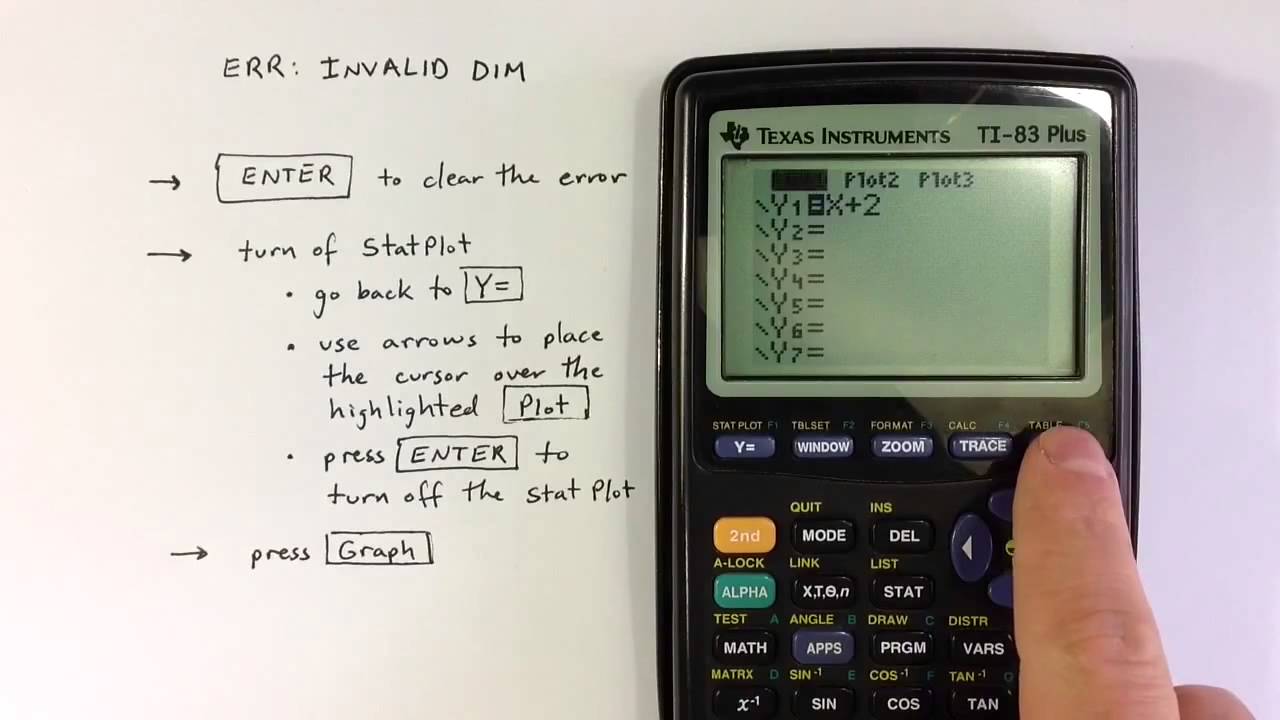 ERR: INVALID DIM
→ ENTER to clear the error
→ turn of StatPlot
• go back to Y=
• use arrows to place
the cursor over the
highlighted Plot
• press ENTER to
turn off the Stat Plot
→ press Graph
TEXAS INSTRUMENTS TI-83 Plus
Plot2 Plot3
\Y1=X+2
\Y2=
\Y3=
\Y4=
\Y5=
\Y6=
\Y7=
STAT PLOT F1 TBLSET F2 FORMAT F3 CALC F4 TABLE F5
Y= WINDOW ZOOM TRACE
QUIT INS
2nd MODE DEL
A-LOCK LINK LIST
ALPHA X,T,Θ,n STAT
TEST A ANGLE B DRAW C DISTR
MATH APPS PRGM VARS
MATRX D SIN⁻¹ E COS⁻¹ F TAN⁻¹
x⁻¹ SIN COS TAN